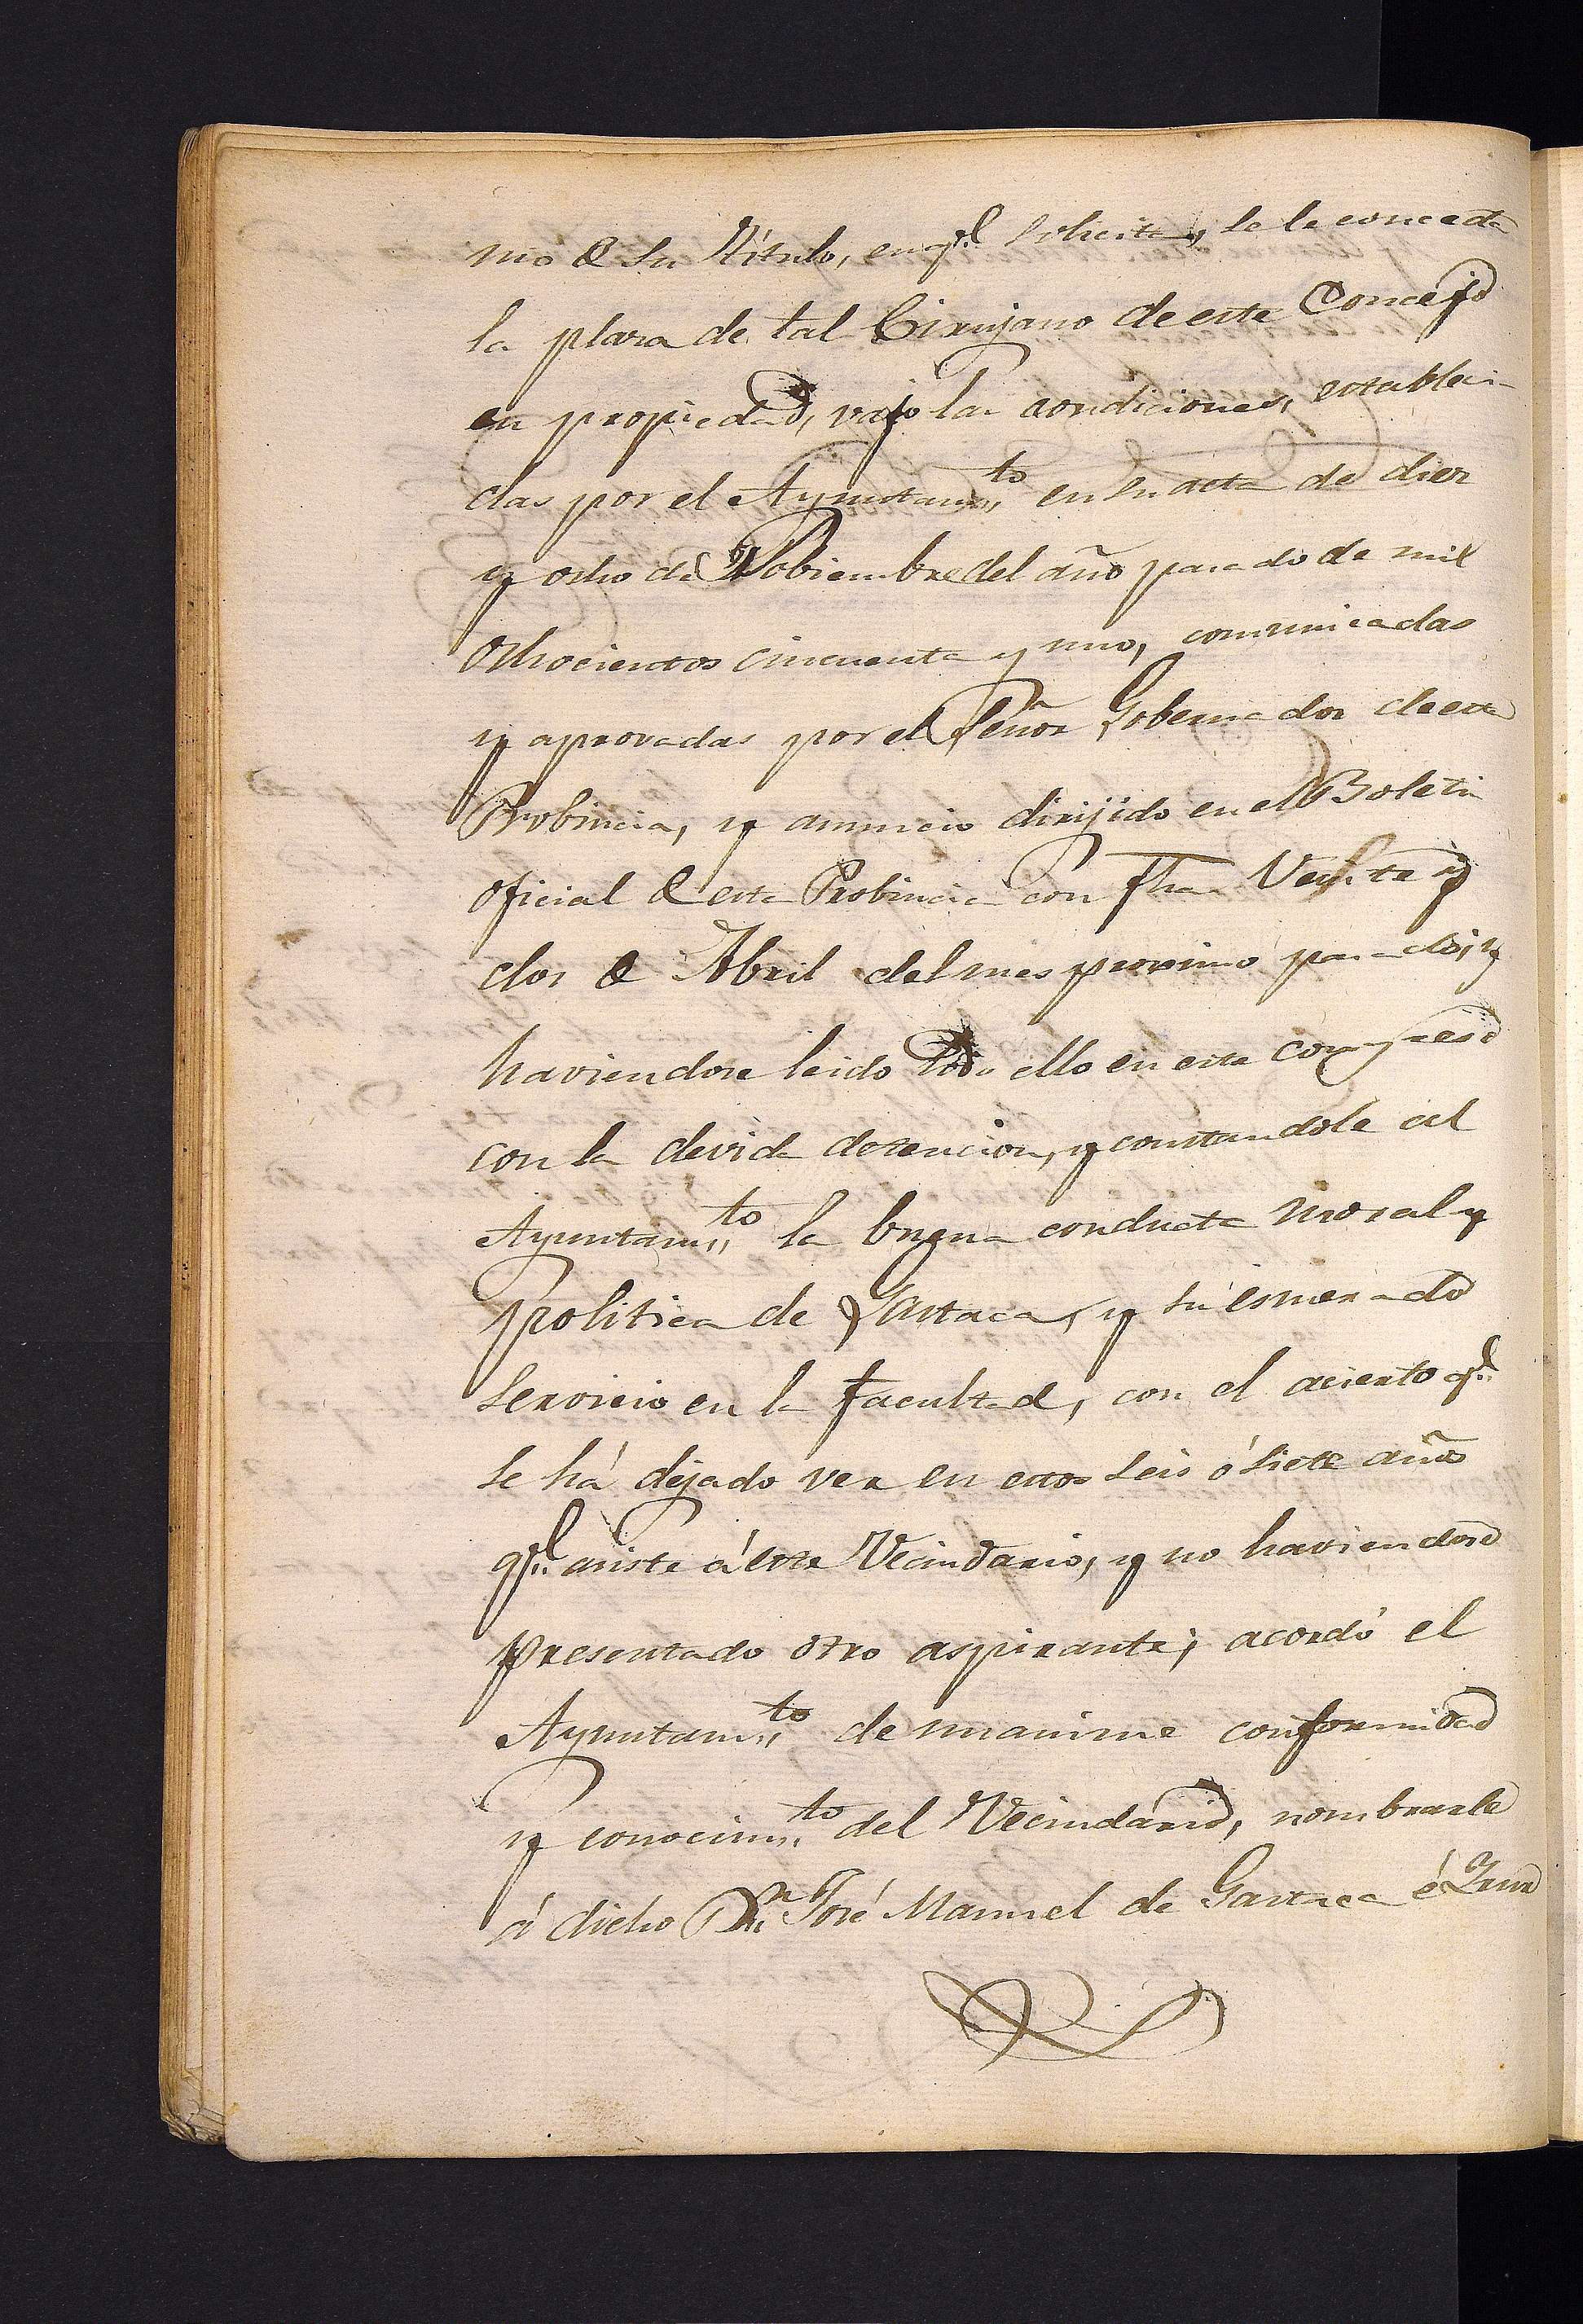 nio & su Título, en q.e solicita, se le conceda
la plaza de tal Cirujano de este Concejo
en propiedad, vajo las condiciones, estableci-
das por el Ayuntam.to en su acta de diez
y ocho de Nobiembre del año pasado de mil
ochocientos cincuenta y uno, comunicadas
y aprovadas por el Señor Gobernador de esta
Probincia, y anuncio dirijido en el Boletin
oficial & esta Probincia con fha Veinte y
dos & Abril del mes proximo pasado; y
haviendose leido todo ello en este congreso
con la devida detencion, y constandole al
Ayuntam.to la buena conducta moral y
politica de Gastaca, y su esmerado
servicio en la facultad, con el acierto q.e
se há dejado ver en estos seis ó siete años
q.e asiste á este Vecindario, y no haviendose
presentado otro aspirante; acordó el
Ayuntam.to de unanime conformidad
y conocim.to del Vecindario, nombrarle
á dicho D.n José Manuel de Gastaca é